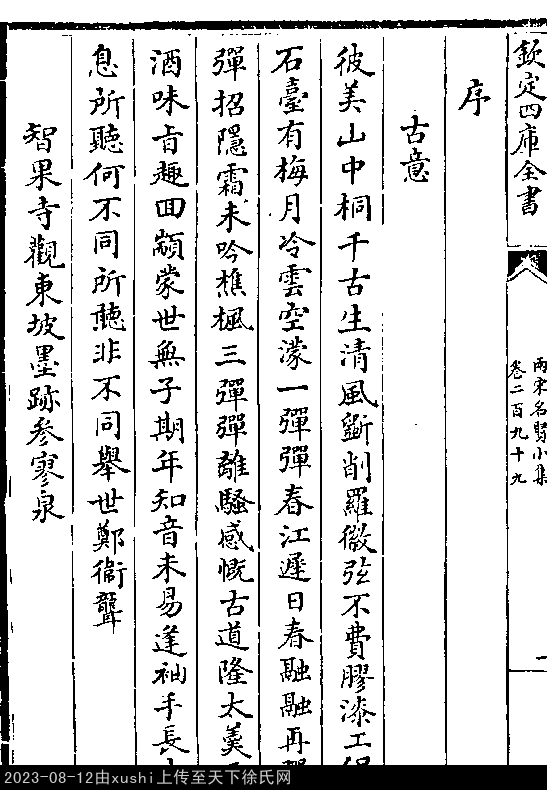 欽定四庫全書
兩宋名賢小集
卷二百九十九
序
古意
彼美山中桐千古生清風斵削羅徽弦不費膠漆工
石臺有梅月冷雲空濛一彈彈春江遲日春融融再
彈招隱霜未吟樵楓三彈彈離騷感慨古道隆太羮
酒味旨趣回顓蒙世無子期年知音未易逢袖手長
息所聽何不同所聽非不同舉世鄭衞聾
智果寺觀東坡墨跡參寥泉
2023-08-12由xushi上传至天下徐氏网